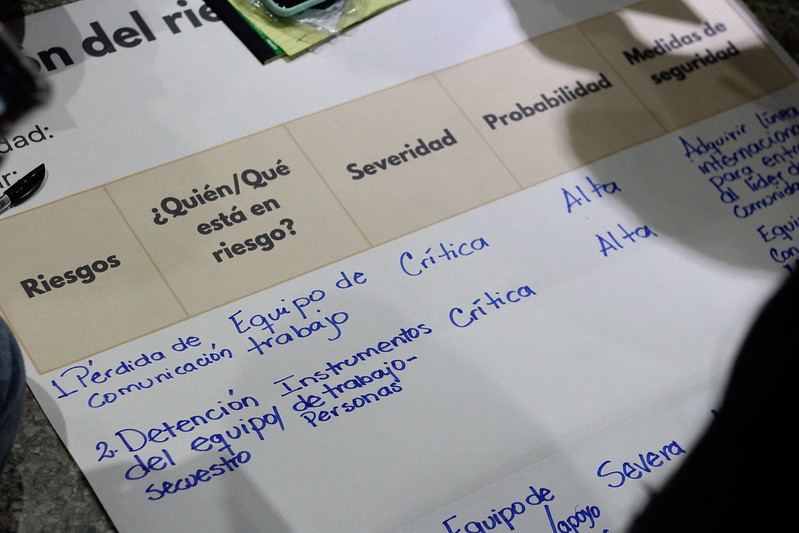 ón del rie
dad:
r:
Riesgos
¿Quién/Qué
está en
riesgo?
Severidad
Probabilidad
Medidas de
seguridad
1. Pérdida de
comunicación
Equipo de
trabajo
Crítica
Alta
Adquirir línea
internaciona
para entr
al líder de
comunida
2. Detención
del equipo/
secuestro
Instrumentos
de trabajo-
Personas
Crítica
Alta
Equi
con
Equipo de
/apoyo
Severa